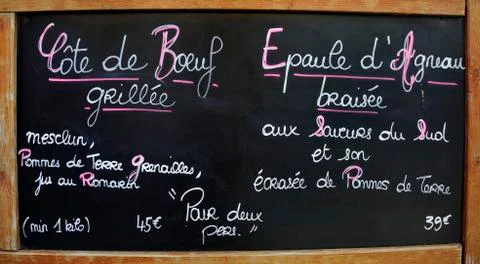 Côte de Bœuf
grillée
mesclun,
Pommes de Terre Grenailles,
jus au Romarin
(min 1 kilo) 45€
"Pour deux
pers."
Epaule d'Agneau
braisée
aux Saveurs du Sud
et son
écrasée de Pommes de Terre
39€